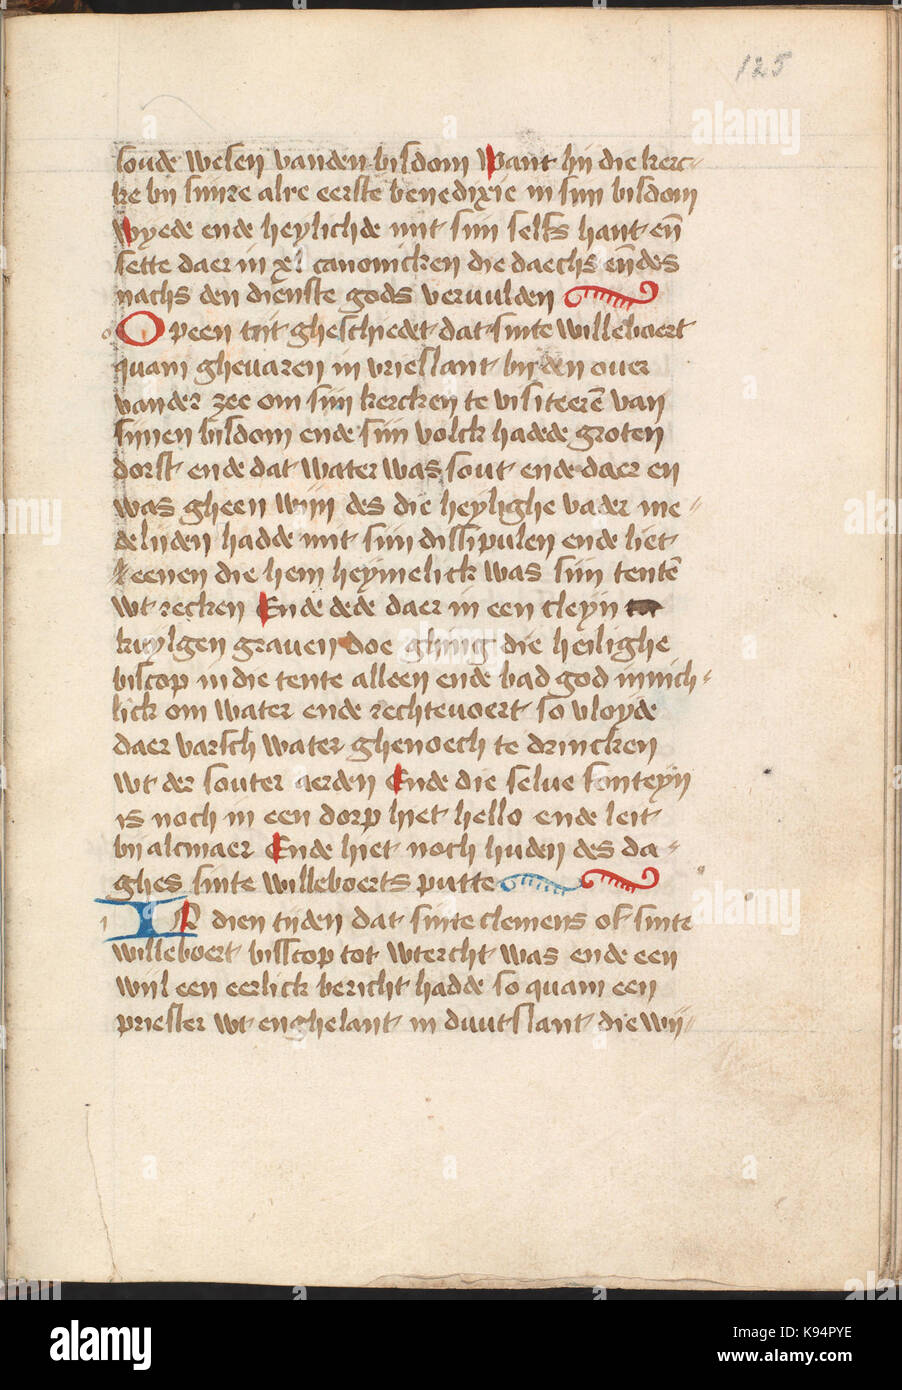 125
soude wesen vanden bisdom Want hij die kerc-
ke bij sinre alre eerste benedixie in sijn bisdom
wyede ende heylichde mit sijn selfs hant en̄
sette daer in xl canonicken die daechs en̄ des
nachs den dienste gods vervulden
Op een tijt gheschiedet dat sinte willeboert
quam ghevaren in vrieslant bijden over
vander zee om sijn kercken te visiteerē van
sijnen bisdom ende sijn volck hadde groten
dorst ende dat water was sout ende daer en
was gheen wijn des die heylighe vader me-
delijden hadde mit sijn dissipulen ende liet
eenen die hem heymelick was sijn tentē
wt recken Ende dede daer in een cleyn
kuylgen graven doe ghing die heilighe
biscop in die tente alleen ende bad god innich-
lick om water ende rechtevoert so vloyde
daer varsch water ghenoech te drincken
wt der souter aerden Ende die selve fonteyn
is noch in een dorp hiet hello ende leit
bij alcmaer Ende hiet noch huden des da-
ghes sinte willeboerts putte
IN dien tijden dat sinte clemens of sinte
willeboert bisscop tot wtercht was ende een
wijl een eerlick bericht hadde so quam een
priester wt enghelant in duutslant die wij-
alamy
Image ID: K94PYE
www.alamy.com